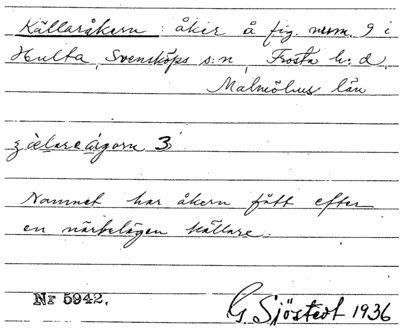 Källaråkern : åker å fig. num. 9 i
Hulta, Svensköps s:n, Frosta h:d,
Malmöhus län
Namnet har åkern fått efter
en närbelägen källare.
Nr 5942. G. Sjöstedt 1936